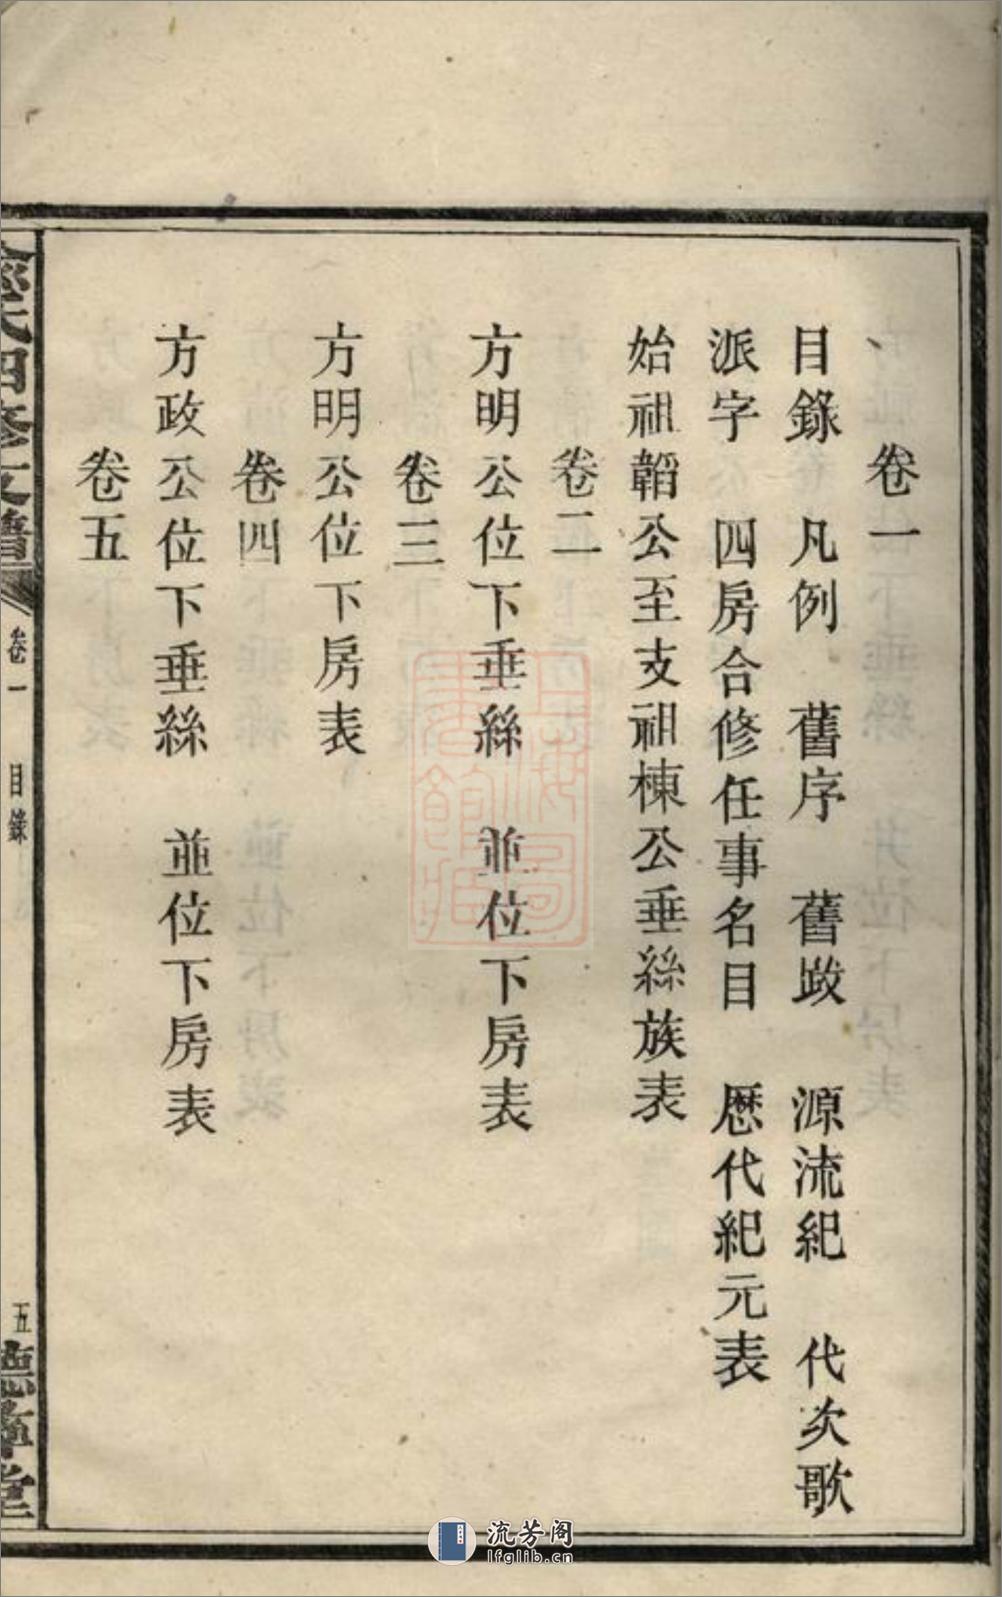 卷一
目錄 凡例 舊序 舊跋 源流紀 代次歌
派字 四房合修任事名目 歷代紀元表
始祖韜公至支祖棟公垂絲族表
卷二
方明公位下垂絲 並位下房表
卷三
方明公位下房表
卷四
方政公位下垂絲 並位下房表
卷五
氏四修支譜 卷一 目錄 五 德章堂
流芳阁
lfglib.cn